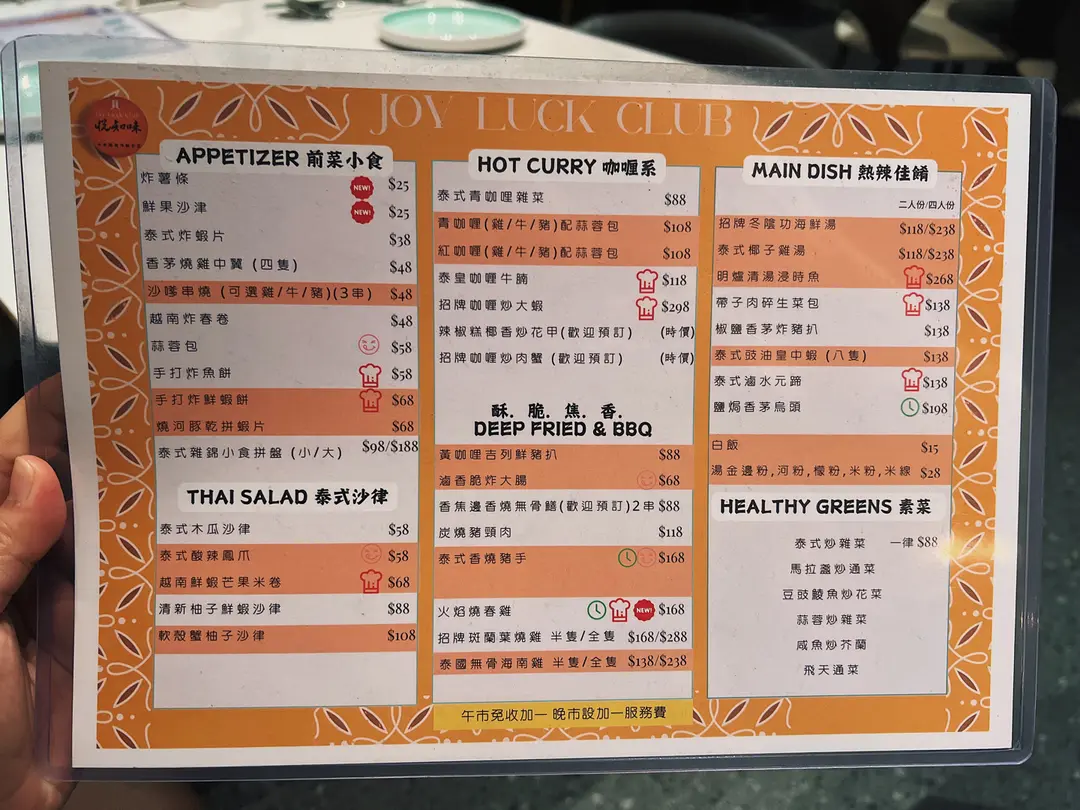 JOY LUCK CLUB
APPETIZER 前菜小食
炸薯條 NEW! $25
鮮果沙津 NEW! $25
泰式炸蝦片 $38
香茅燒雞中翼 (四隻) $48
沙嗲串燒 (可選雞/牛/豬)(3串) $48
越南炸春卷 $48
蒜蓉包 $58
手打炸魚餅 $58
手打炸鮮蝦餅 $68
燒河豚乾拼蝦片 $68
泰式雜錦小食拼盤 (小/大) $98/$188
THAI SALAD 泰式沙律
泰式木瓜沙律 $58
泰式酸辣鳳爪 $58
越南鮮蝦芒果米卷 $68
清新柚子鮮蝦沙律 $88
軟殼蟹柚子沙律 $108
HOT CURRY 咖喱系
泰式青咖哩雜菜 $88
青咖喱(雞/牛/豬)配蒜蓉包 $108
紅咖喱(雞/牛/豬)配蒜蓉包 $108
泰皇咖喱牛腩 $118
招牌咖喱炒大蝦 $298
辣椒糕椰香炒花甲(歡迎預訂) (時價)
招牌咖喱炒肉蟹 (歡迎預訂) (時價)
酥. 脆. 焦. 香.
DEEP FRIED & BBQ
黃咖哩吉列鮮豬扒 $88
滷香脆炸大腸 $68
香蕉邊香燒無骨鱔(歡迎預訂)2串 $88
炭燒豬頸肉 $118
泰式香燒豬手 $168
火焰燒春雞 NEW! $168
招牌斑蘭葉燒雞 半隻/全隻 $168/$288
泰國無骨海南雞 半隻/全隻 $138/$238
午市免收加一 晚市設加一服務費
MAIN DISH 熱辣佳餚
二人份/四人份
招牌冬陰功海鮮湯 $118/$238
泰式椰子雞湯 $118/$238
明爐清湯浸時魚 $268
帶子肉碎生菜包 $138
椒鹽香茅炸豬扒 $138
泰式豉油皇中蝦 (八隻) $138
泰式滷水元蹄 $138
鹽焗香茅烏頭 $198
白飯 $15
湯金邊粉,河粉,檬粉,米粉,米線 $28
HEALTHY GREENS 素菜
泰式炒雜菜 一律 $88
馬拉盞炒通菜
豆豉鯪魚炒花菜
蒜蓉炒雜菜
咸魚炒芥蘭
飛天通菜